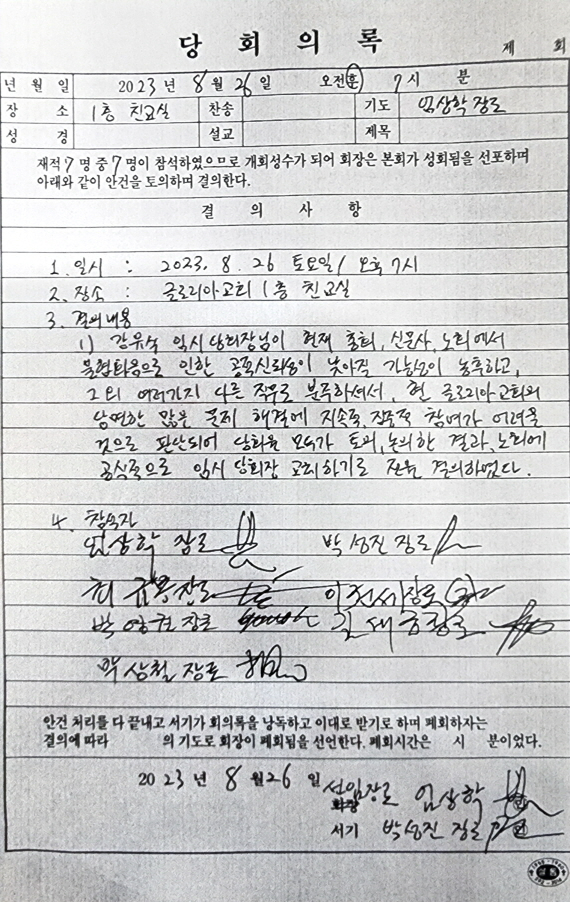 당 회 의 록
제 회
년 월 일 2023년 8월 26일 오전훈 7시 분
장 소 1층 친교실 찬송 기도 임상학 장로
성 경 설교 제목
재적 7 명 중 7 명이 참석하였으므로 개회성수가 되어 회장은 본회가 성회됨을 선포하며
아래와 같이 안건을 토의하며 결의한다.
결 의 사 항
1. 일시 : 2023. 8. 26 토요일 / 오후 7시
2. 장소 : 글로리아교회 1층 친교실
3. 결의내용
1) 강유숙 임시당회장님이 현재 총회, 신문사, 노회에서
불협화음으로 인한 공적신뢰성이 낮아질 가능성이 농후하고,
그외 여러가지 다른 직무로 분주하셔서, 현 글로리아교회의
당면한 많은 문제 해결에 지속적, 집중적 참여가 어려울
것으로 판단되어 당회원 모두가 토의, 논의한 결과, 노회에
공식적으로 임시 당회장 교체하기로 전원 결의하였다.
4. 참석자
임상학 장로 박성진 장로
최 장로 장로
박영권 장로 장로
박상철 장로
안건 처리를 다 끝내고 서기가 회의록을 낭독하고 이대로 받기로 하며 폐회하자는
결의에 따라 의 기도로 회장이 폐회됨을 선언한다. 폐회시간은 시 분이었다.
2023년 8월 26일 선임장로 임상학
회장
서기 박성진 장로